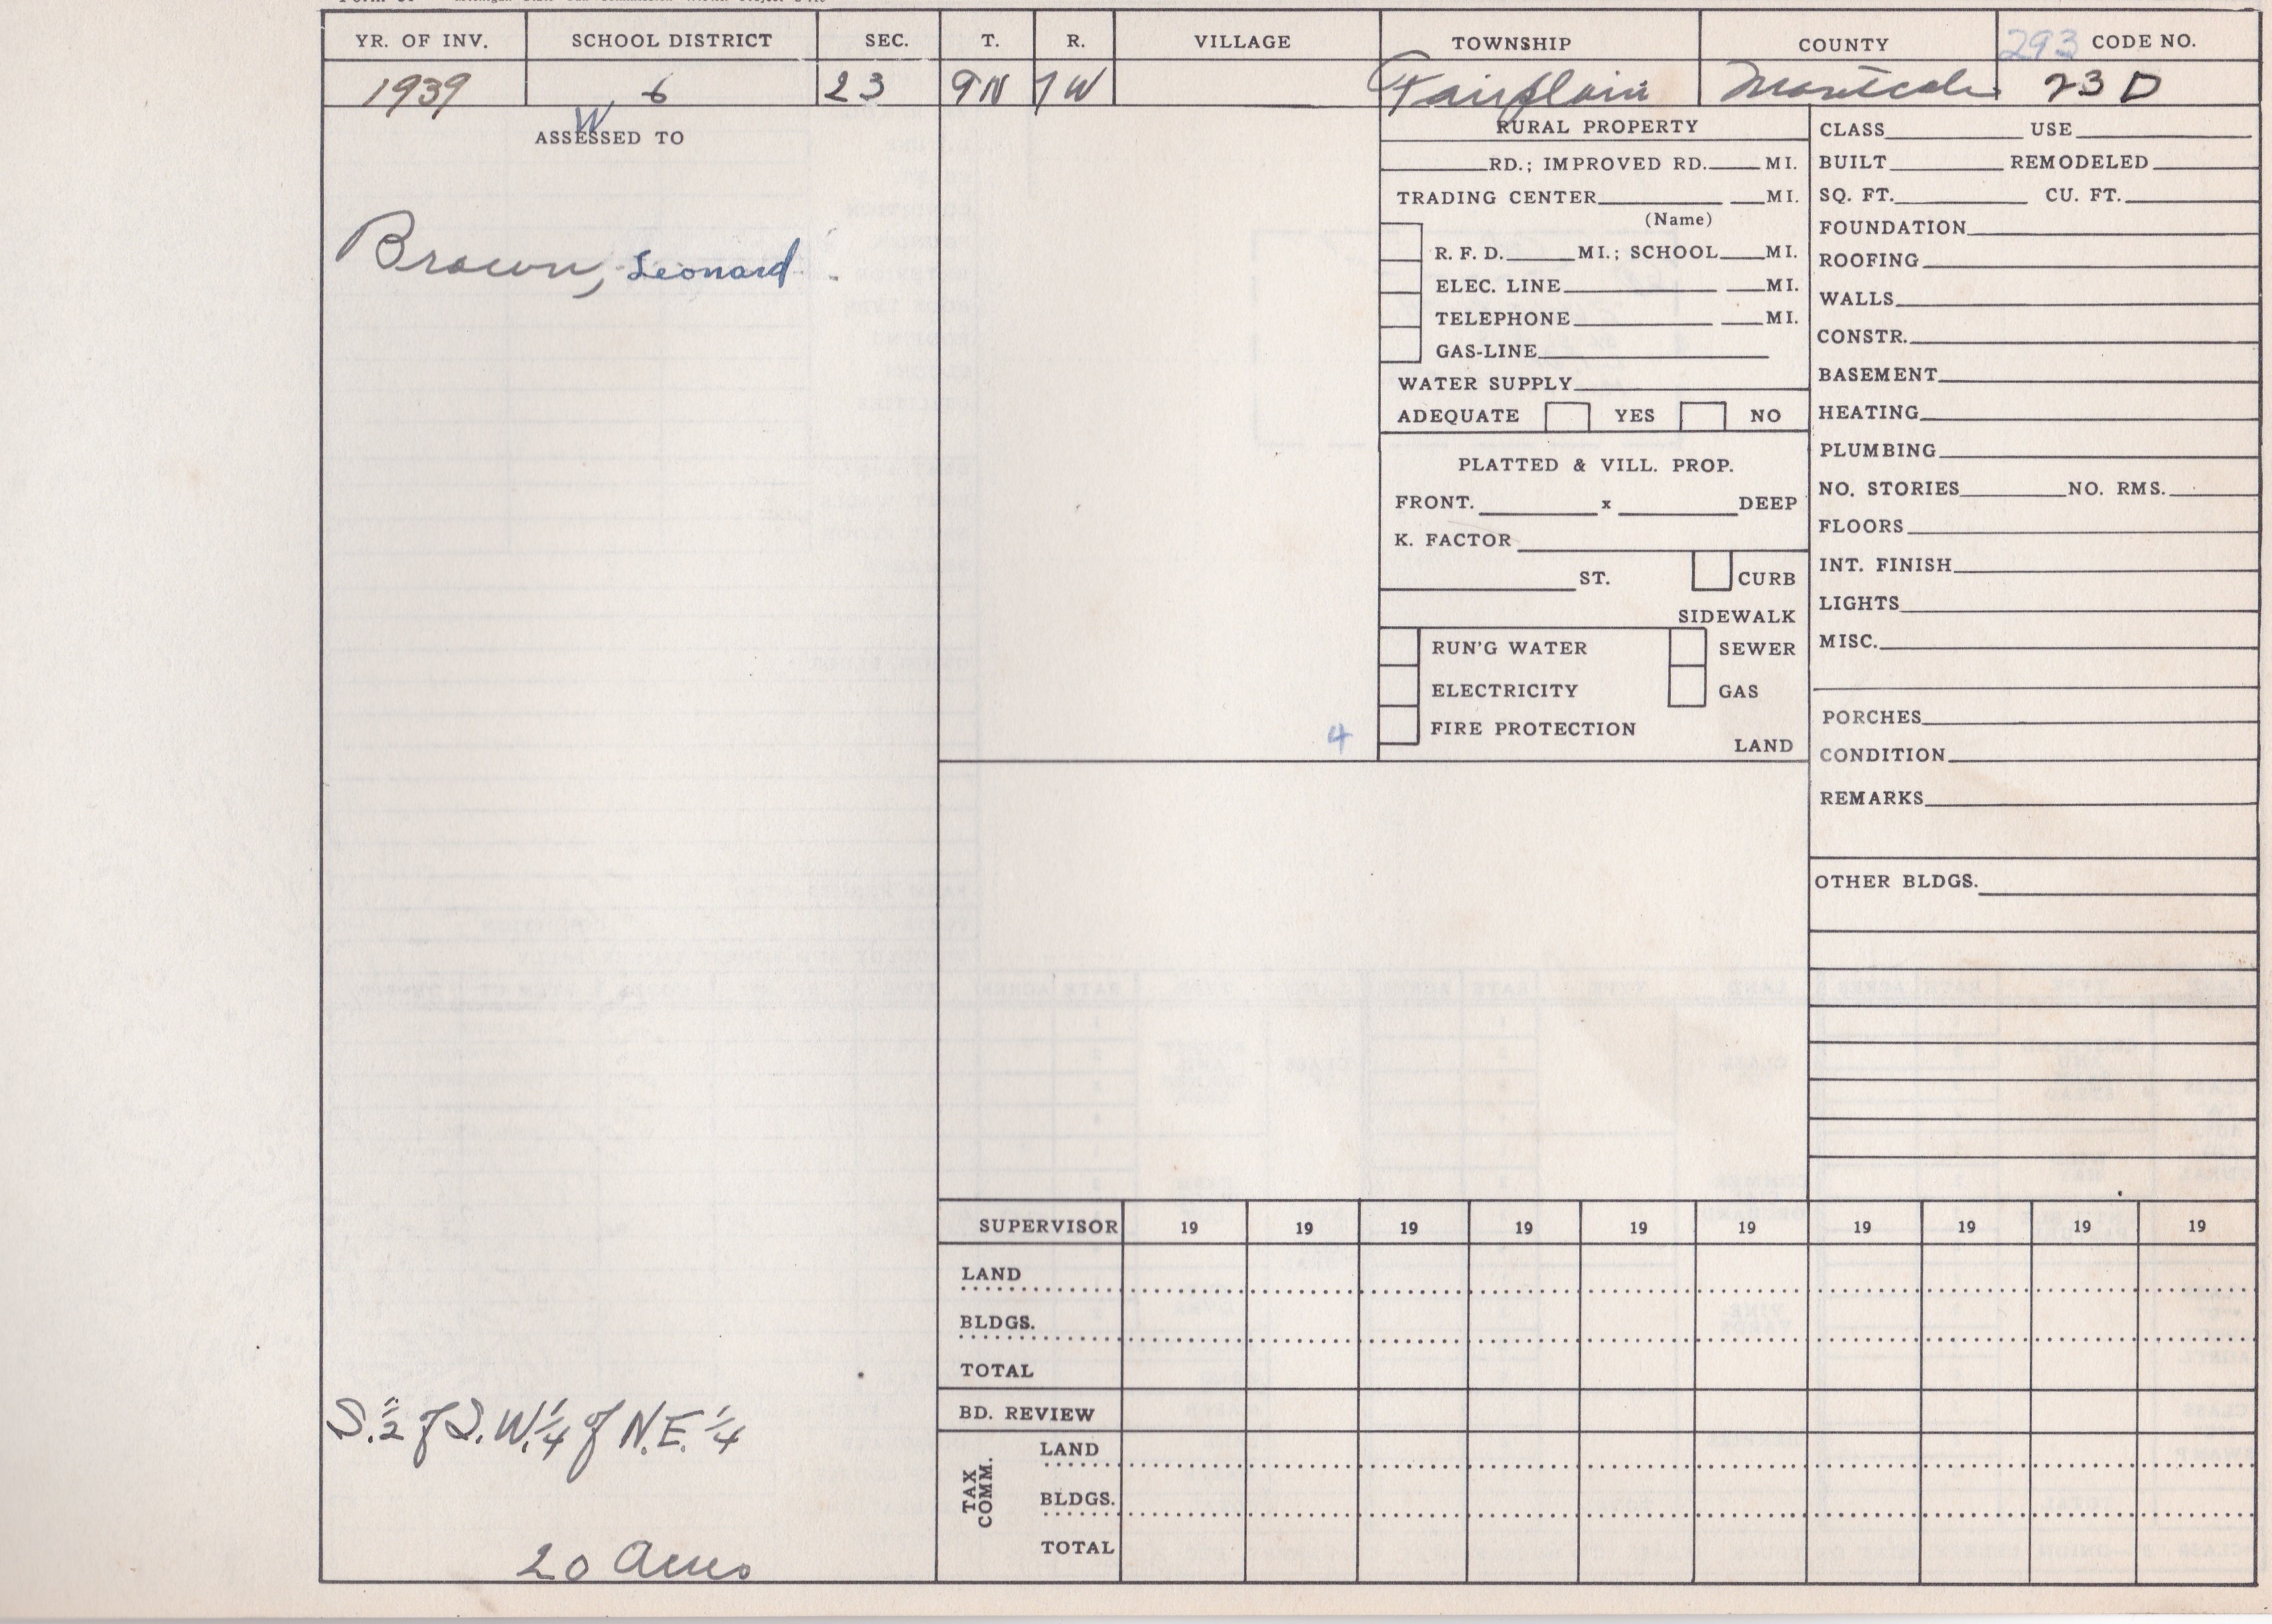 YR. OF INV. SCHOOL DISTRICT SEC. T. R. VILLAGE TOWNSHIP COUNTY 293 CODE NO.
1939 6 23 9N 7W Fairplain Montcalm 23 D
W
ASSESSED TO
Brown, Leonard
S.½ of S.W.¼ of N.E.¼
20 Acres
4
RURAL PROPERTY
RD.; IMPROVED RD. MI.
TRADING CENTER MI.
(Name)
R. F. D. MI.; SCHOOL MI.
ELEC. LINE MI.
TELEPHONE MI.
GAS-LINE
WATER SUPPLY
ADEQUATE YES NO
PLATTED & VILL. PROP.
FRONT. x DEEP
K. FACTOR
ST. CURB
SIDEWALK
RUN'G WATER SEWER
ELECTRICITY GAS
FIRE PROTECTION
LAND
CLASS USE
BUILT REMODELED
SQ. FT. CU. FT.
FOUNDATION
ROOFING
WALLS
CONSTR.
BASEMENT
HEATING
PLUMBING
NO. STORIES NO. RMS.
FLOORS
INT. FINISH
LIGHTS
MISC.
PORCHES
CONDITION
REMARKS
OTHER BLDGS.
SUPERVISOR 19 19 19 19 19 19 19 19 19 19
LAND
BLDGS.
TOTAL
BD. REVIEW
TAX COMM.
LAND
BLDGS.
TOTAL